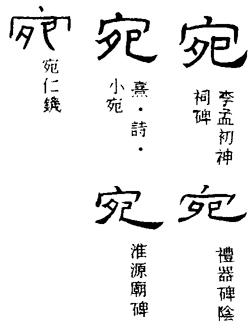 宛
李孟初神
祠碑
宛
熹·詩·
小宛
宛
宛仁鐖
宛
禮器碑陰
宛
淮源廟碑